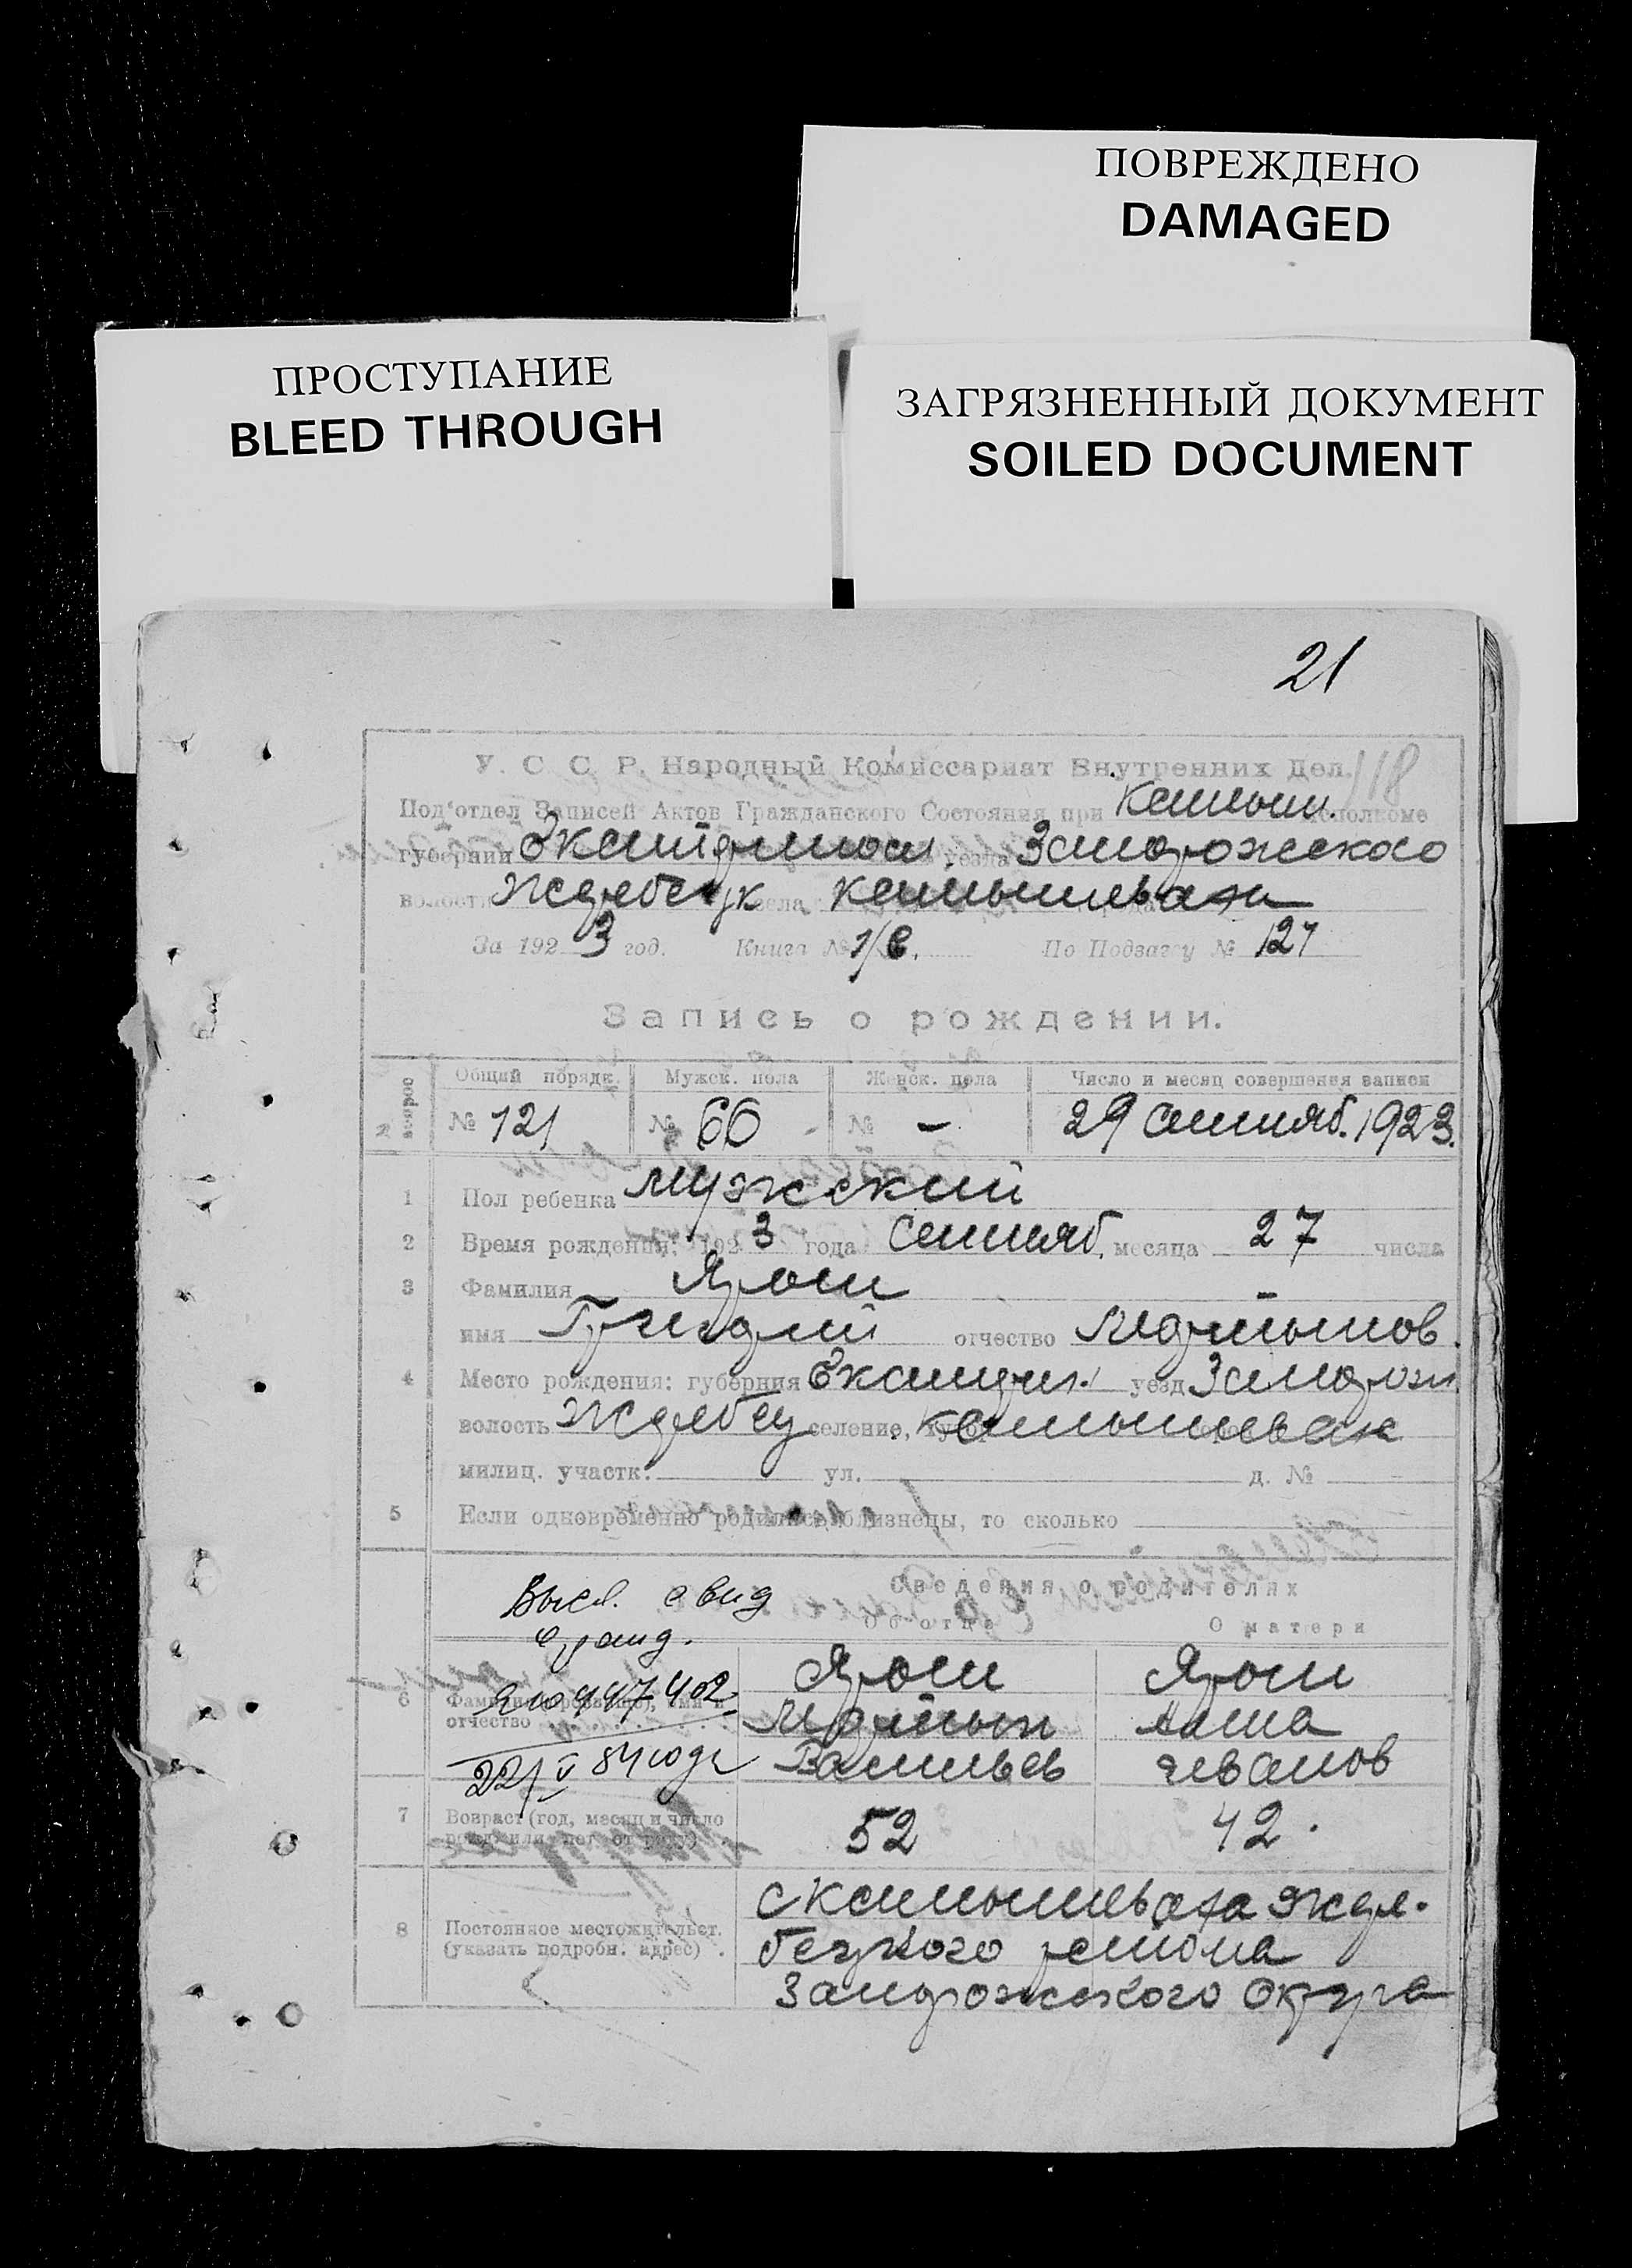 ПОВРЕЖДЕНО
DAMAGED
ПРОСТУПАНИЕ
BLEED THROUGH
ЗАГРЯЗНЕННЫЙ ДОКУМЕНТ
SOILED DOCUMENT
21
118
У. С. С. Р. Народный Комиссариат Внутренних Дел.
Под'отдел Записей Актов Гражданского Состояния при Камыш. исполкоме
губернии Екатеринос уезда Запорожского
волости Жеребецк села Камышеваха
За 1923 год. Книга № 1/в. По Подзагсу № 121
Запись о рождении.
Общий порядк. Мужск. пола Женск. пола Число и месяц совершения записи
№ 121 № 60 № - 29 сентяб. 1923.
1 Пол ребенка мужский
2 Время рождения: 1923 года сентяб. месяца 27 числа
3 Фамилия Ярош
имя Григорий отчество Мартынов.
4 Место рождения: губерния Екатерин. уезд Запорож
волость Жеребец селение, хутор Камышевах
милиц. участк. ул. д. №
5 Если одновременно родились близнецы, то сколько
Сведения о родителях
Об отце О матери
Высл. свид
ЯЮ 447402
22/V 84 года
6 Фамилия (прозвище), имя и отчество
Ярош Ярош
Мартын Анна
Васильев Иванов
7 Возраст (год, месяц и число рожд. или лет от роду) 52 42.
8 Постоянное местожительст. (указать подробн. адрес).
с Камышеваха Жере-
бецкого района
Запорожского округа